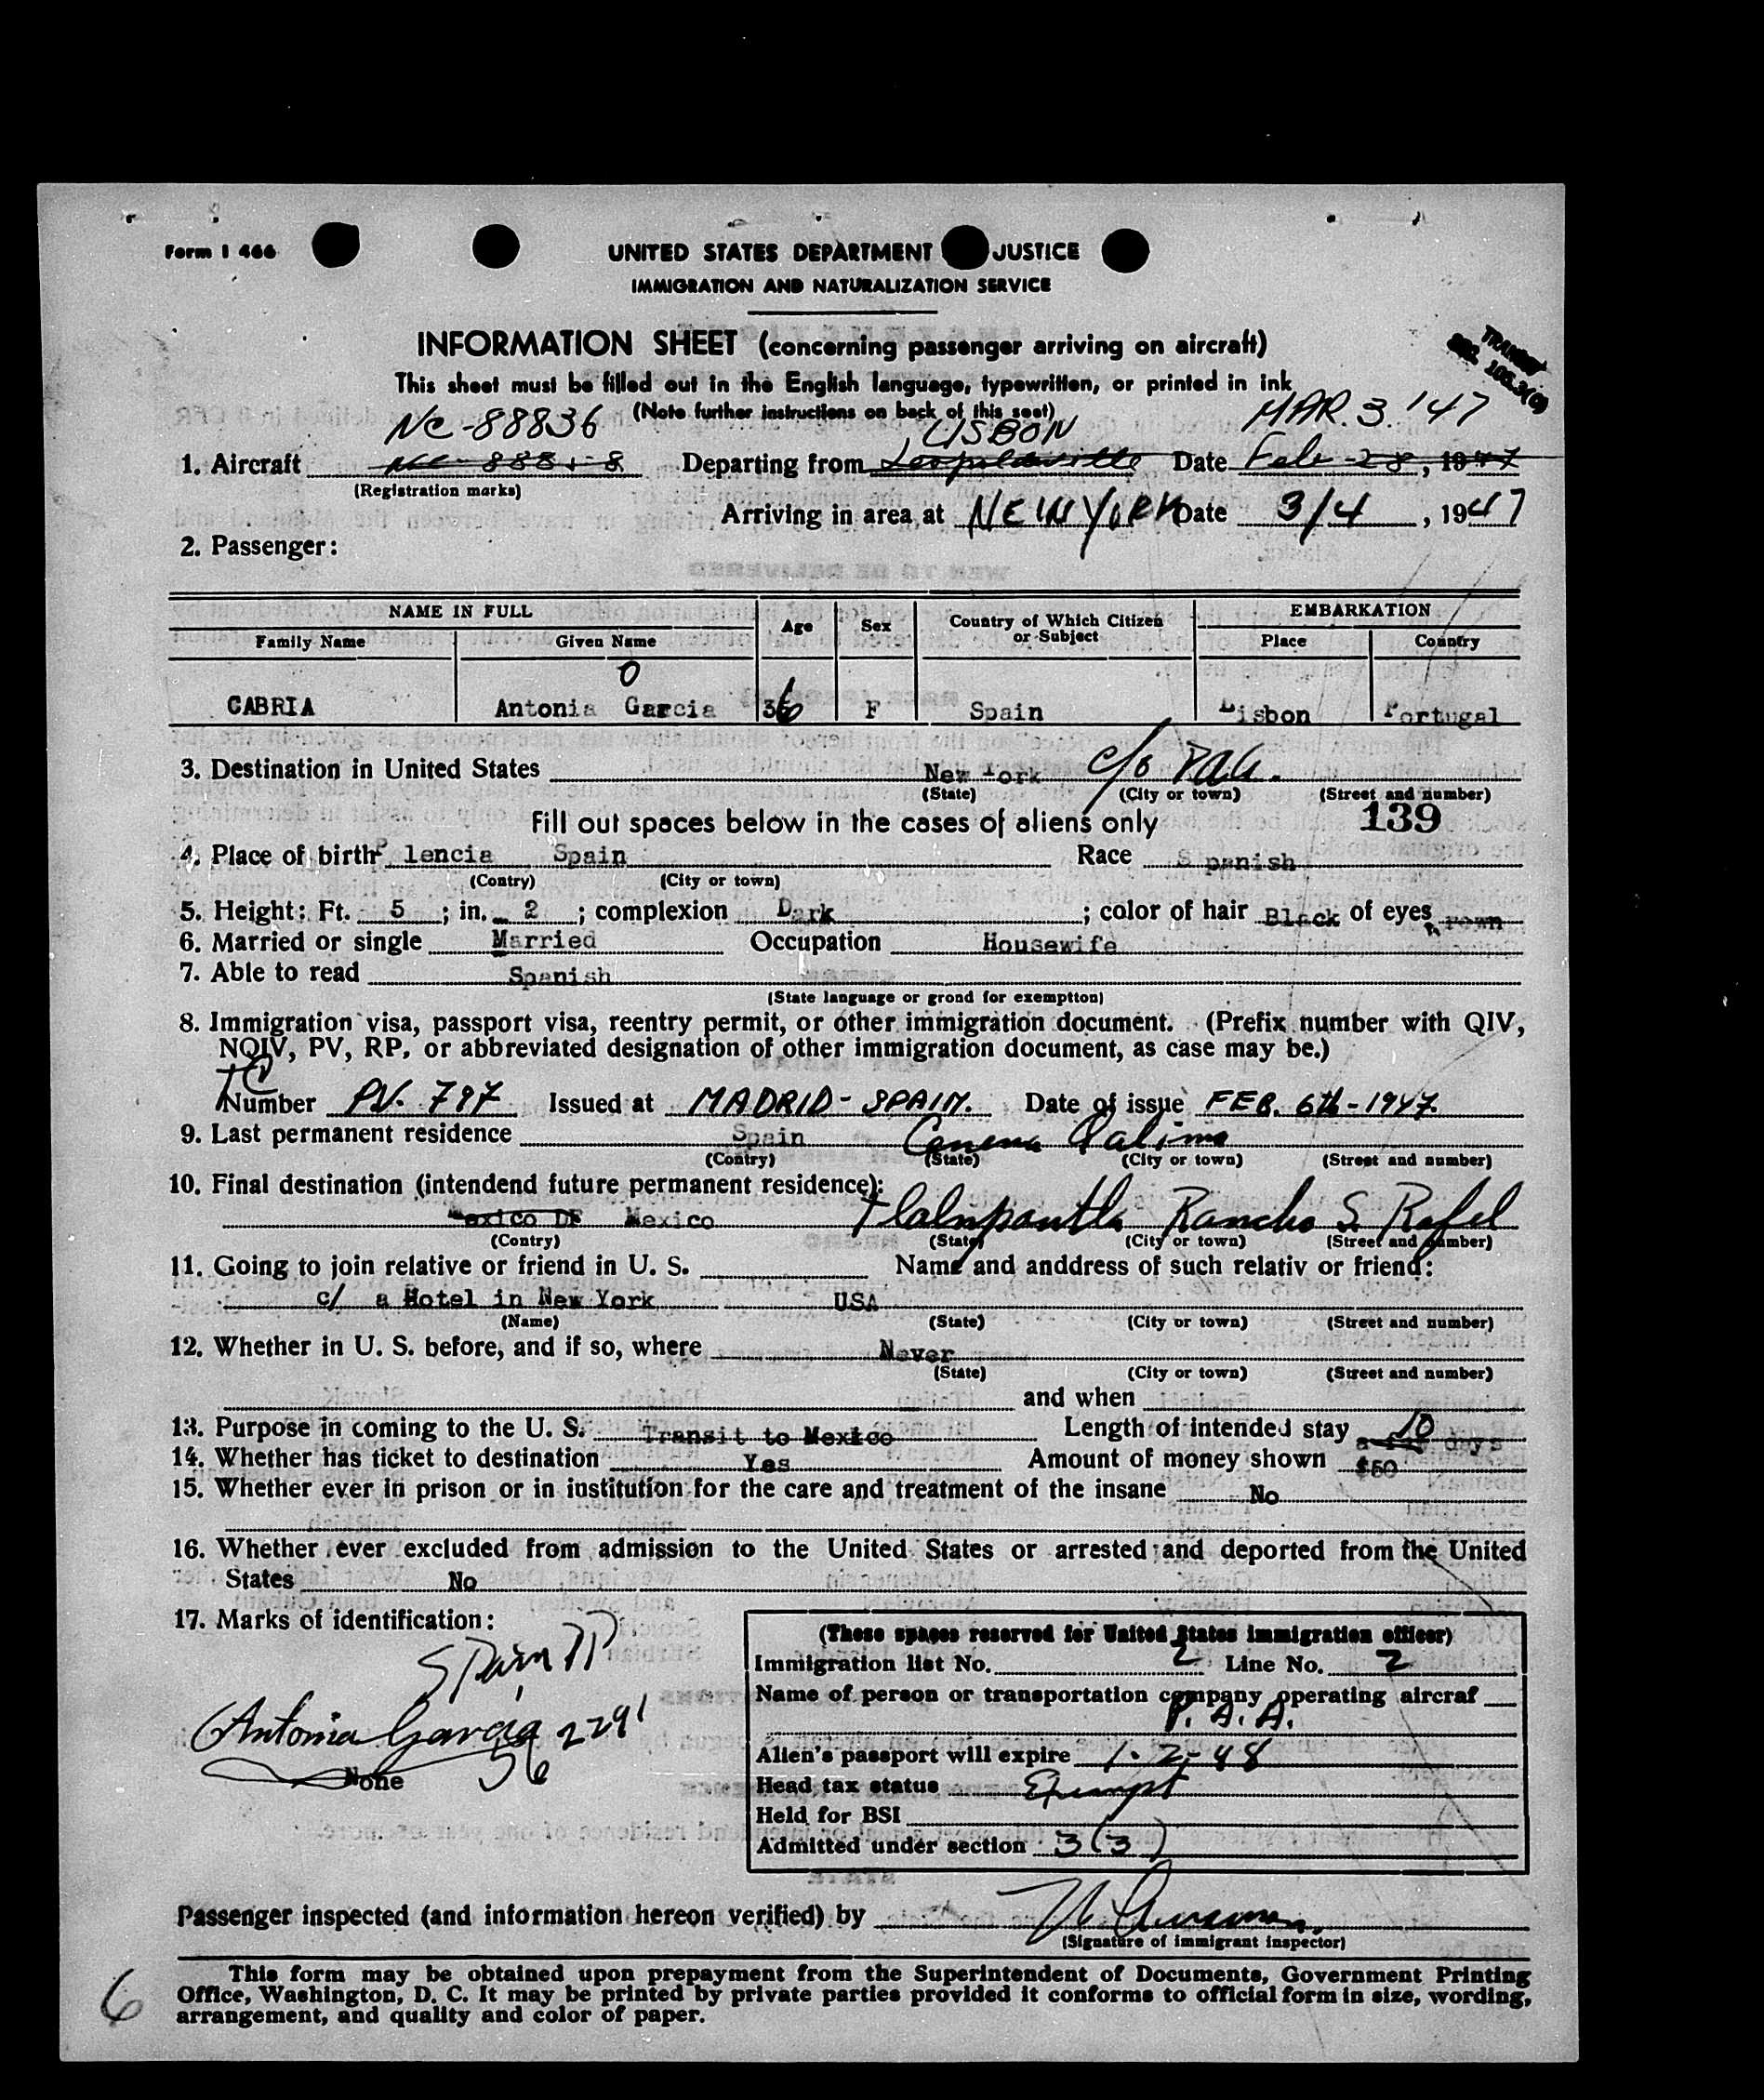 Form I 466
UNITED STATES DEPARTMENT JUSTICE
IMMIGRATION AND NATURALIZATION SERVICE
INFORMATION SHEET (concerning passenger arriving on aircraft)
This sheet must be filled out in the English language, typewritten, or printed in ink
(Note further instructions on back of this seet)
TRANSIT
SEC. 
NC-88836 LISBON MAR. 3. '47
1. Aircraft Departing from Leopoldville Date Feb 28, 1947
(Registration marks)
Arriving in area at NEW YORK Date 3/4, 1947
2. Passenger:
NAME IN FULL Age Sex Country of Which Citizen or Subject EMBARKATION
Family Name Given Name Place Country
O
CABRIA Antonia Garcia 36 F Spain Lisbon Portugal
3. Destination in United States New York c/o PAA.
(State) (City or town) (Street and number)
Fill out spaces below in the cases of aliens only 139
4. Place of birth P lencia Spain Race Spanish
(Contry) (City or town)
5. Height: Ft. 5; in. 2; complexion Dark; color of hair Black of eyes Brown
6. Married or single Married Occupation Housewife
7. Able to read Spanish
(State language or grond for exemptton)
8. Immigration visa, passport visa, reentry permit, or other immigration document. (Prefix number with QIV,
NQIV, PV, RP, or abbreviated designation of other immigration document, as case may be.)
Number PV. 797 Issued at MADRID-SPAIN. Date of issue FEB. 6th-1947.
9. Last permanent residence Spain
(Contry) (State) (City or town) (Street and number)
10. Final destination (intendend future permanent residence):
Mexico DF Mexico Tlalnpantla Rancho S. Rafel
(Contry) (State) (City or town) (Street and number)
11. Going to join relative or friend in U. S. Name and anddress of such relativ or friend:
c/ a Hotel in New York USA
(Name) (State) (City or town) (Street and number)
12. Whether in U. S. before, and if so, where Never
(State) (City or town) (Street and number)
and when
13. Purpose in coming to the U. S. Transit to Mexico Length of intended stay 10 a few days
14. Whether has ticket to destination Yes Amount of money shown $50
15. Whether ever in prison or in iustitution for the care and treatment of the insane No
16. Whether ever excluded from admission to the United States or arrested and deported from the United
States No
17. Marks of identification:
Spain PP
Antonia Garcia 2291
None 56
(These spaces reserved for United States immigration officer)
Immigration list No. 2 Line No. 2
Name of person or transportation company operating aircraf
P. A. A.
Alien's passport will expire 1-2-48
Head tax status Exempt
Held for BSI
Admitted under section 3(3)
Passenger inspected (and information hereon verified) by
(Signature of immigrant inspector)
This form may be obtained upon prepayment from the Superintendent of Documents, Government Printing
Office, Washington, D. C. It may be printed by private parties provided it conforms to official form in size, wording,
arrangement, and quality and color of paper.
6